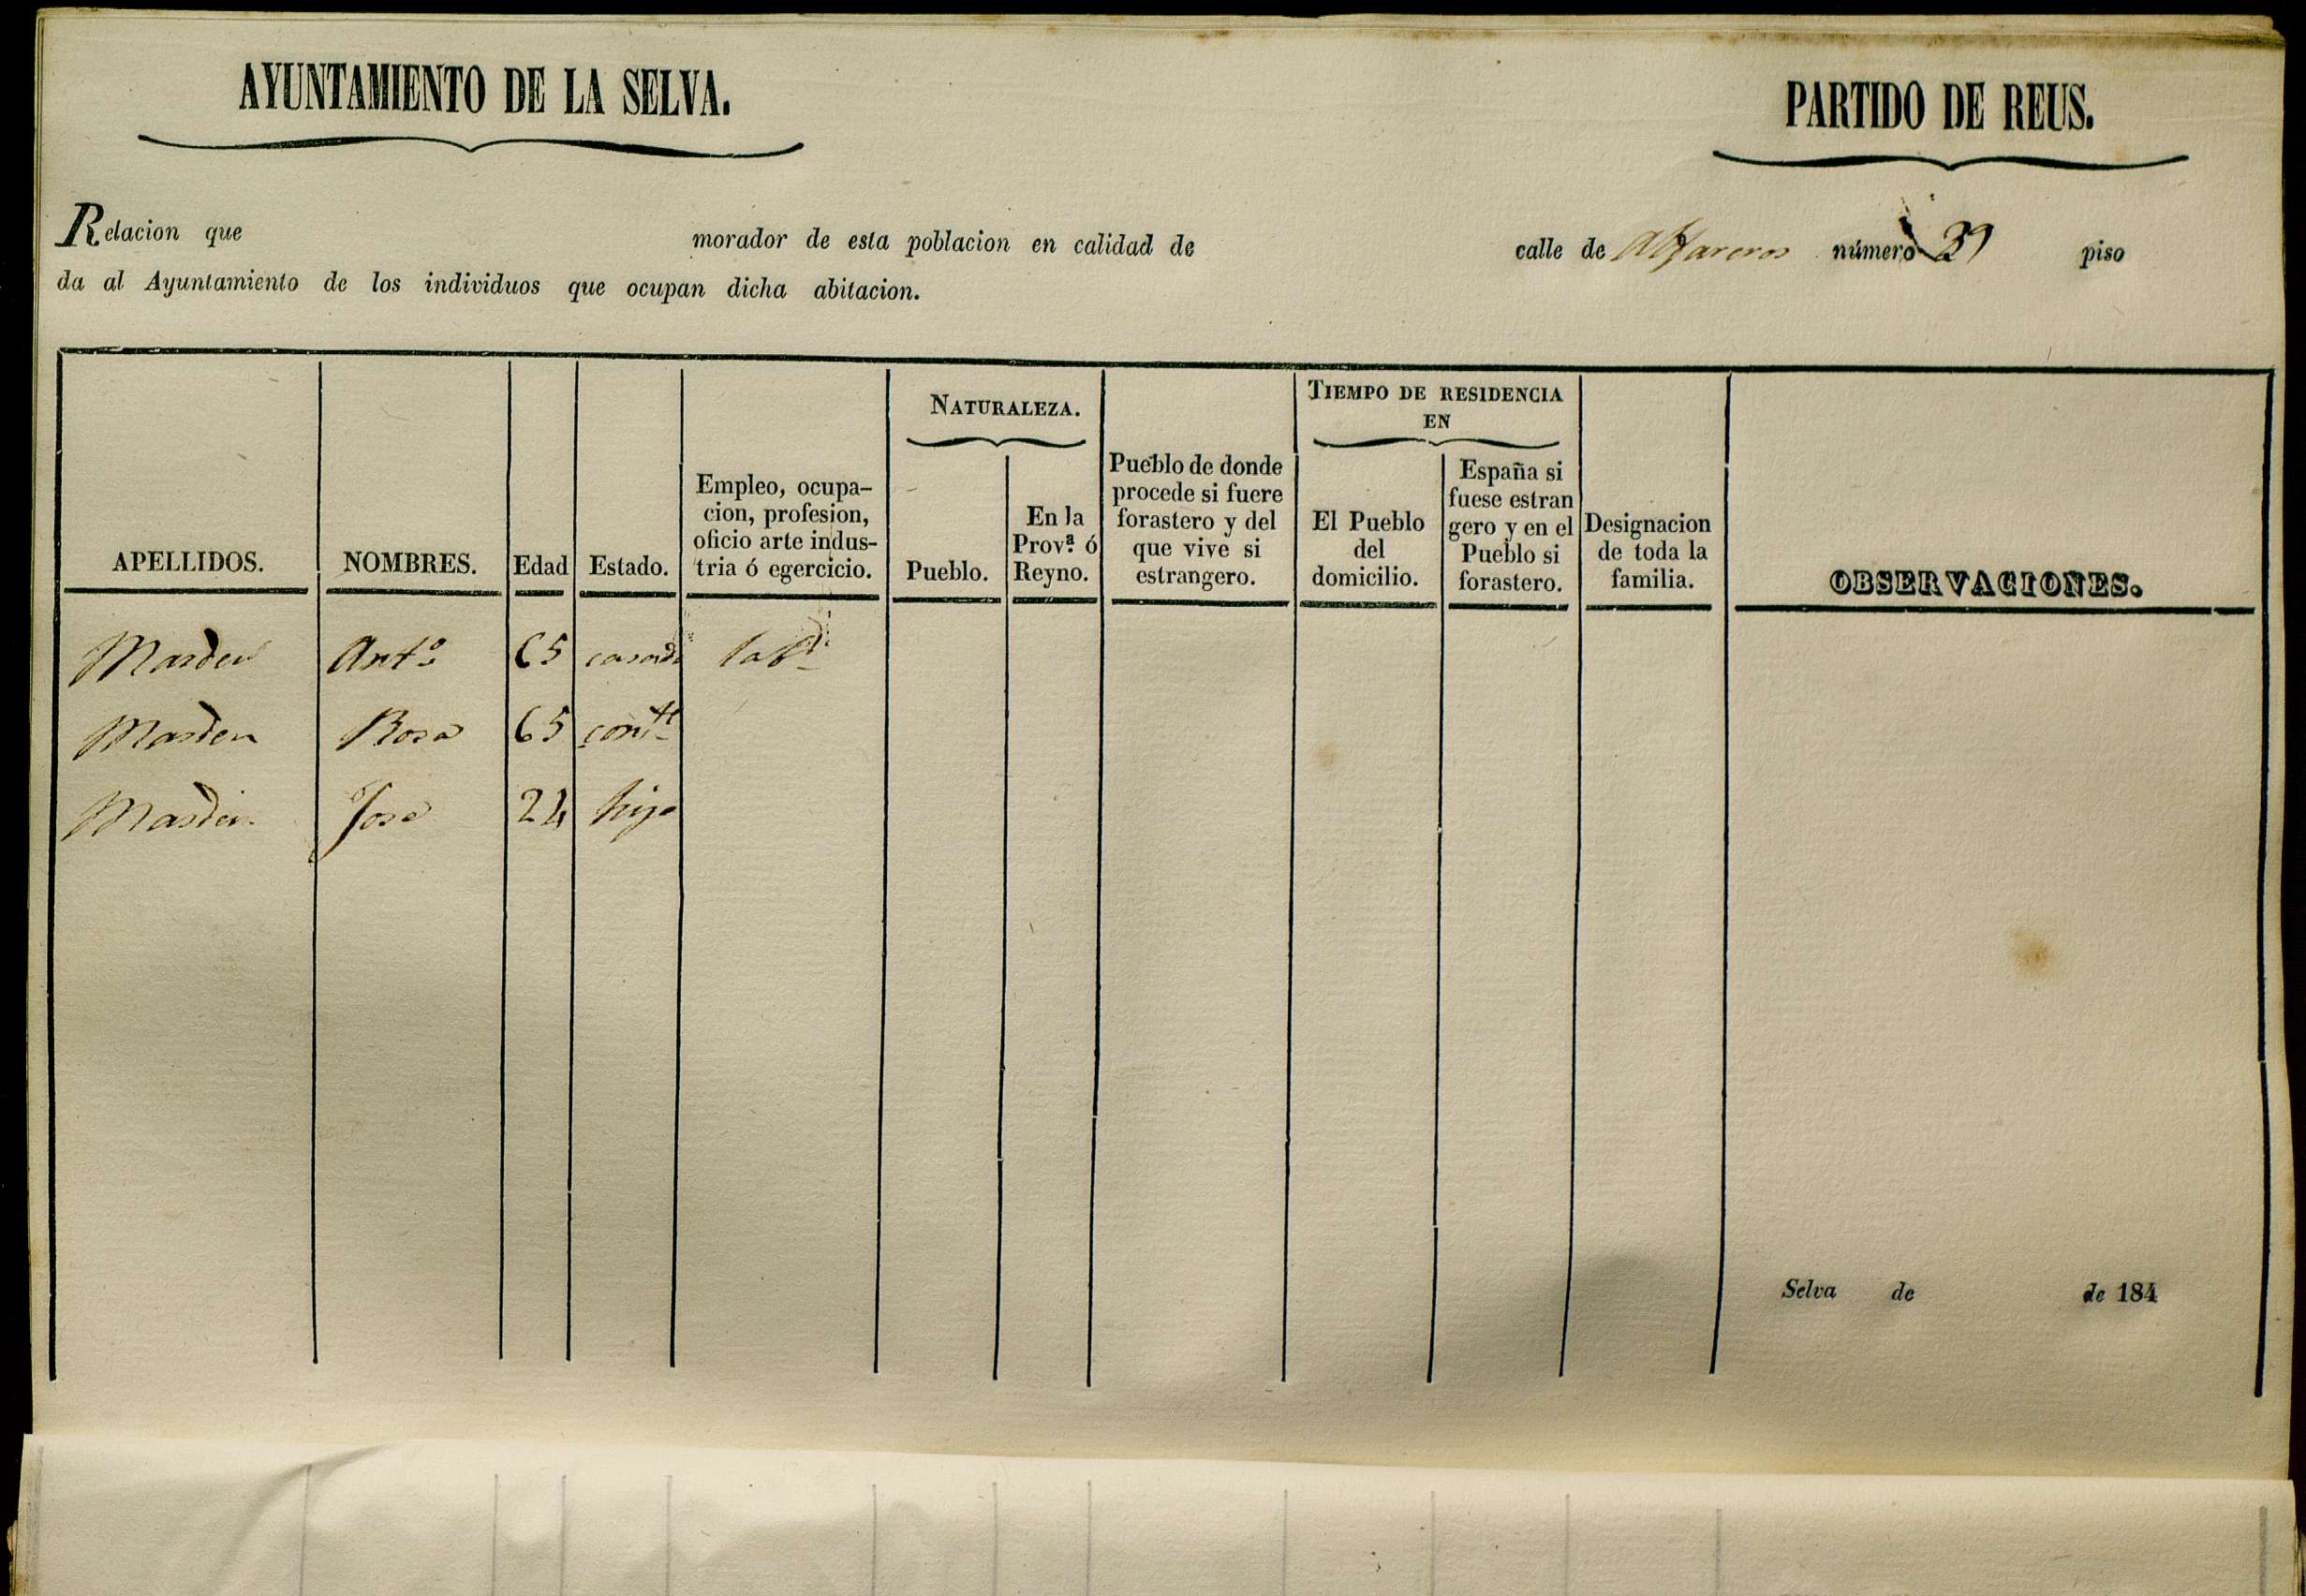 AYUNTAMIENTO DE LA SELVA.
PARTIDO DE REUS.
Relacion que morador de esta poblacion en calidad de calle de Alfareros número 39 piso
da al Ayuntamiento de los individuos que ocupan dicha abitacion.
NATURALEZA.
TIEMPO DE RESIDENCIA
EN
APELLIDOS.
NOMBRES.
Edad
Estado.
Empleo, ocupa-
cion, profesion,
oficio arte indus-
tria ó egercicio.
Pueblo.
En la
Prov.ª ó
Reyno.
Pueblo de donde
procede si fuere
forastero y del
que vive si
estrangero.
El Pueblo
del
domicilio.
España si
fuese estran
gero y en el
Pueblo si
forastero.
Designacion
de toda la
familia.
OBSERVACIONES.
Ant.º 65 casado lab.r
Rosa 65 con.te
Jose 24 hijo
Selva de de 184